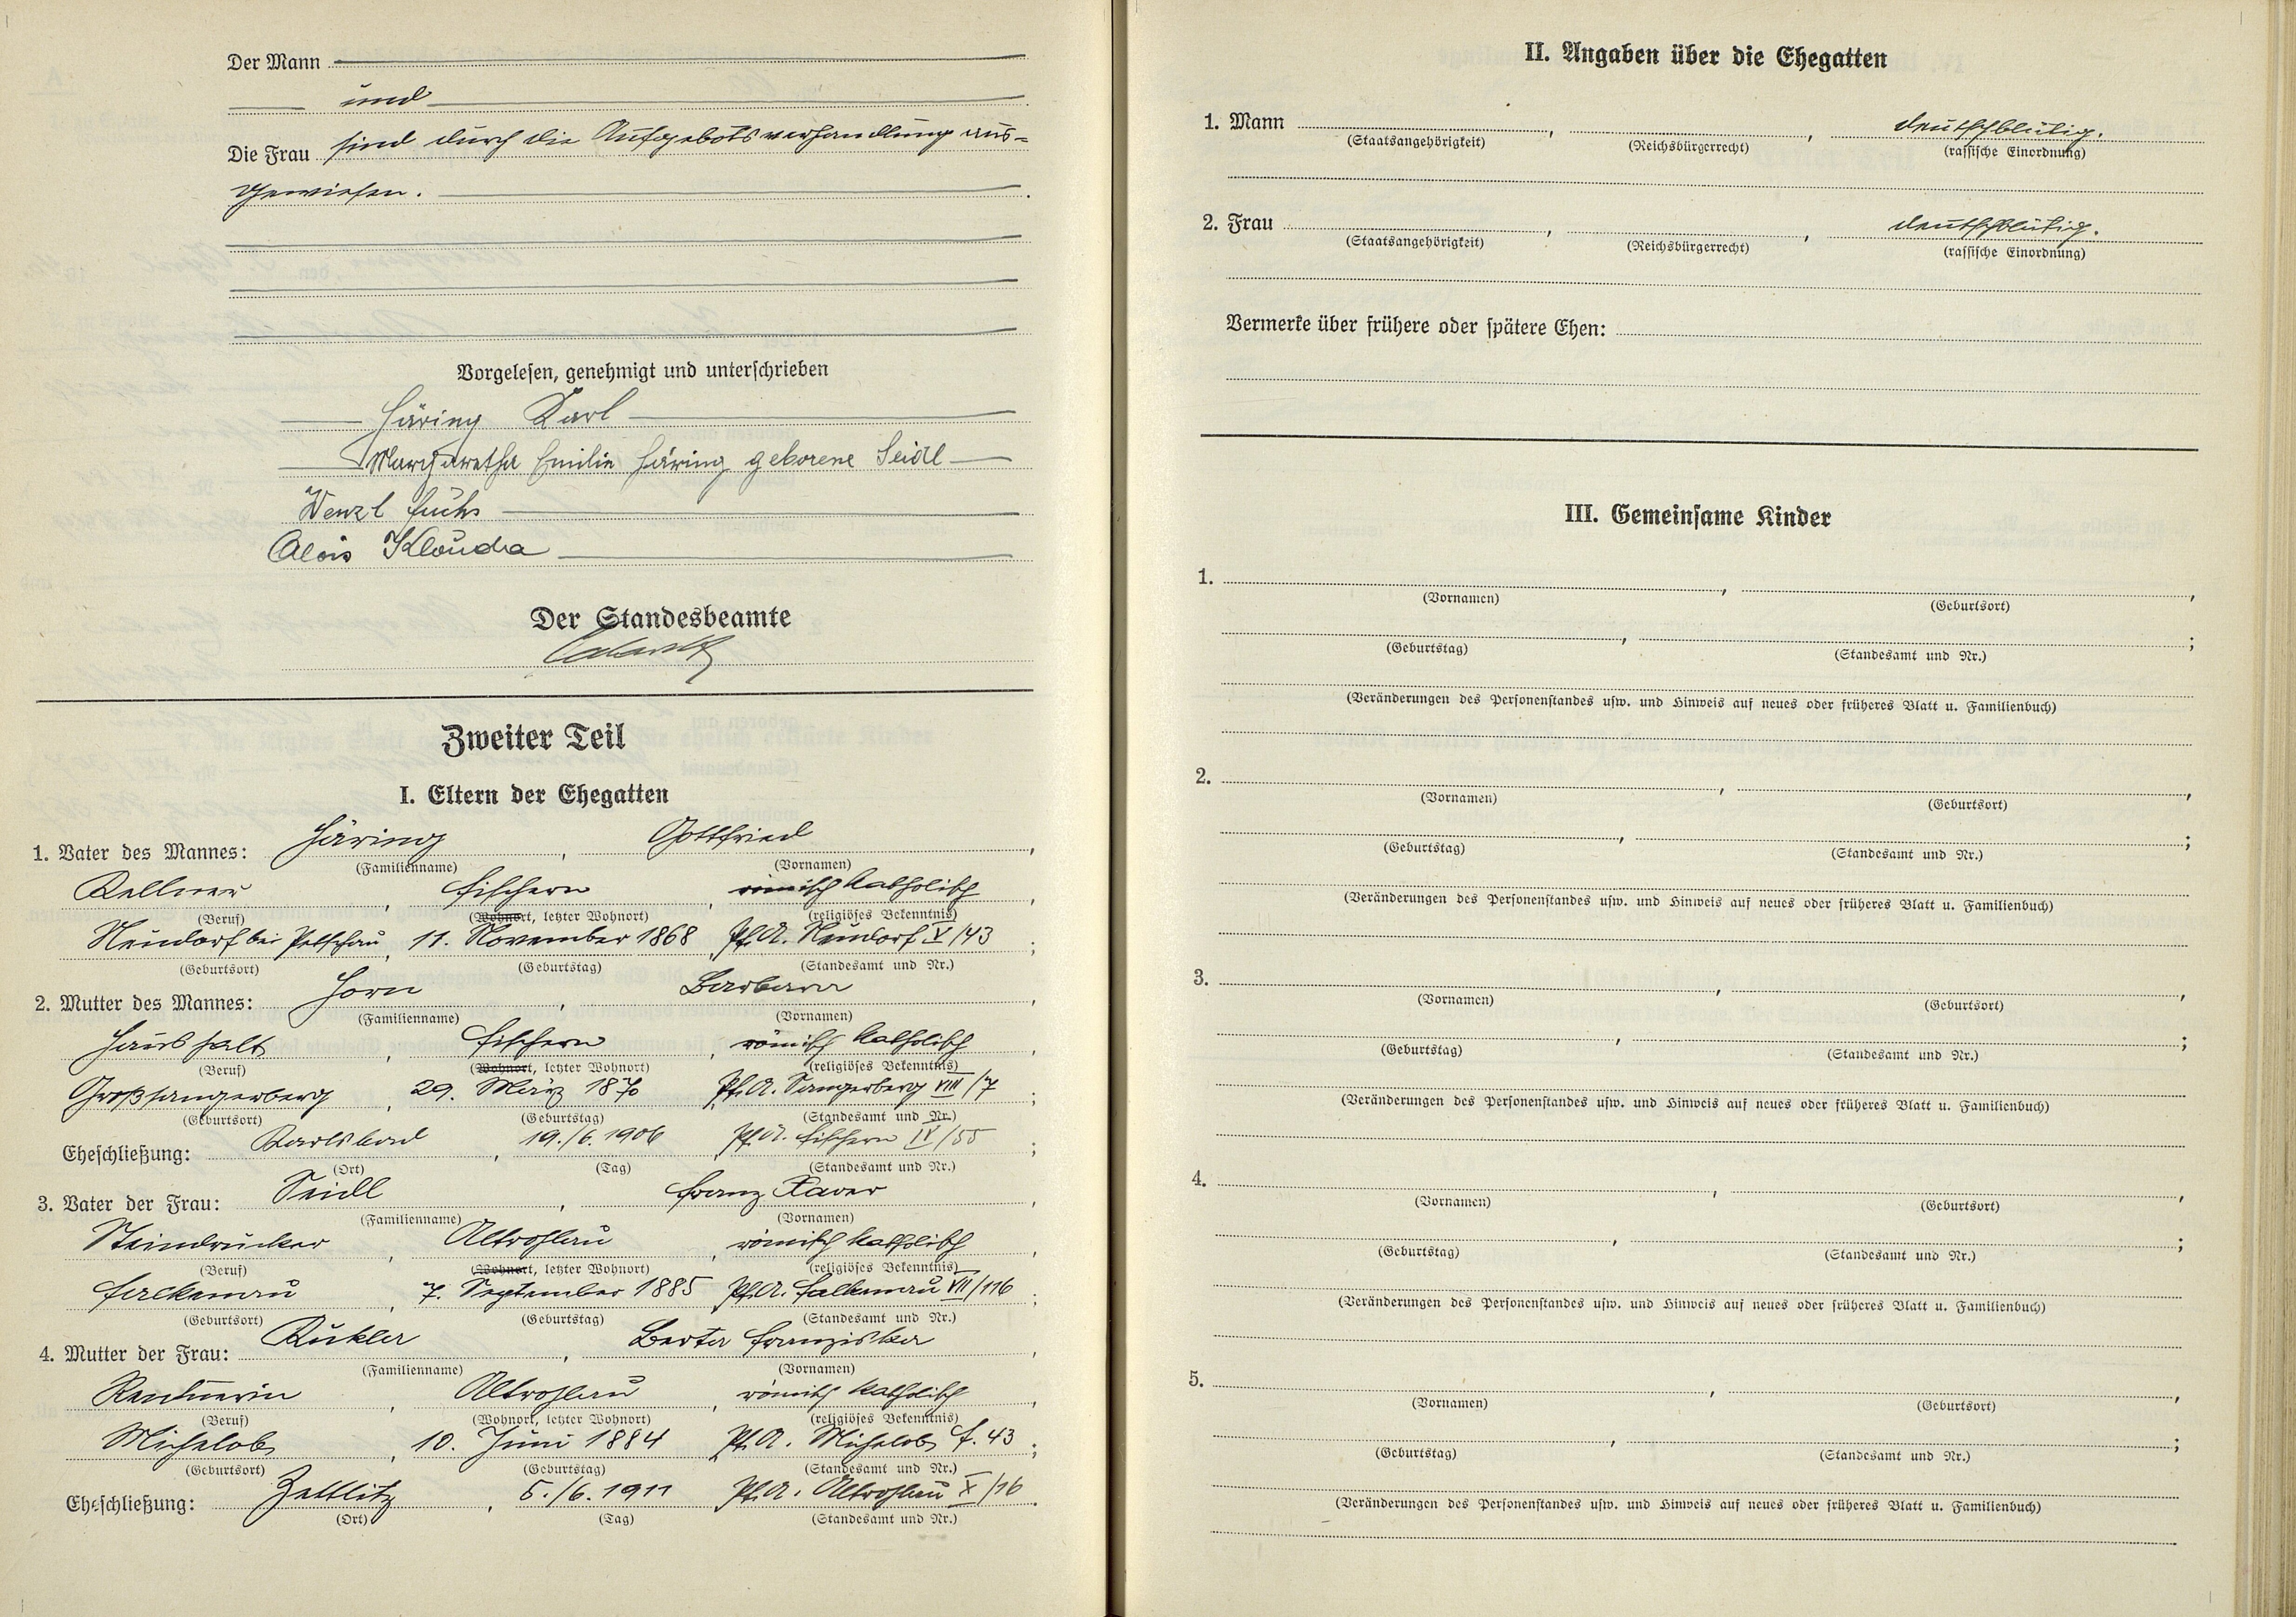 Der Mann
und
Die Frau sind durch die Aufgebotsverhandlung aus=
gewiesen.
Vorgelesen, genehmigt und unterschrieben
Häring Karl
Margaretha Emilie Häring geborene Seidl
Wenzl Fuchs
Alois Klouda
Der Standesbeamte
Zweiter Teil
I. Eltern der Ehegatten
1. Vater des Mannes: Häring, Gottfried,
(Familienname) (Vornamen)
Kellner, Fischern, römisch katholisch,
(Beruf) (Wohnort, letzter Wohnort) (religiöses Bekenntnis)
Neudorf bei Petschau, 11. November 1868, Pf.A. Neudorf V/43;
(Geburtsort) (Geburtstag) (Standesamt und Nr.)
2. Mutter des Mannes: Horn, Barbara,
(Familienname) (Vornamen)
Haushalt, Fischern, römisch katholisch,
(Beruf) (Wohnort, letzter Wohnort) (religiöses Bekenntnis)
Großsangerberg, 29. März 1870, Pf.A. Sangerberg VIII/7;
(Geburtsort) (Geburtstag) (Standesamt und Nr.)
Eheschließung: Karlsbad, 19./6. 1906, Pf.A. Fischern IV/55;
(Ort) (Tag) (Standesamt und Nr.)
3. Vater der Frau: Seidl, Franz Xaver,
(Familienname) (Vornamen)
Steindrucker, Altrohlau, römisch katholisch,
(Beruf) (Wohnort, letzter Wohnort) (religiöses Bekenntnis)
Falkenau, 7. September 1885, Pf.A. Falkenau VII/116;
(Geburtsort) (Geburtstag) (Standesamt und Nr.)
4. Mutter der Frau: Kukler, Berta Franziska,
(Familienname) (Vornamen)
Rentnerin, Altrohlau, römisch katholisch,
(Beruf) (Wohnort, letzter Wohnort) (religiöses Bekenntnis)
Michelob, 10. Juni 1884, Pf.A. Michelob f. 43;
(Geburtsort) (Geburtstag) (Standesamt und Nr.)
Eheschließung: Zettlitz, 5./6. 1911, Pf.A. Altrohlau X/16.
(Ort) (Tag) (Standesamt und Nr.)
II. Angaben über die Ehegatten
1. Mann, , deutschblütig.
(Staatsangehörigkeit) (Reichsbürgerrecht) (rassische Einordnung)
2. Frau, , deutschblütig.
(Staatsangehörigkeit) (Reichsbürgerrecht) (rassische Einordnung)
Vermerke über frühere oder spätere Ehen:
III. Gemeinsame Kinder
1. , ,
(Vornamen) (Geburtsort)
, ;
(Geburtstag) (Standesamt und Nr.)
(Veränderungen des Personenstandes usw. und Hinweis auf neues oder früheres Blatt u. Familienbuch)
2. , ,
(Vornamen) (Geburtsort)
, ;
(Geburtstag) (Standesamt und Nr.)
(Veränderungen des Personenstandes usw. und Hinweis auf neues oder früheres Blatt u. Familienbuch)
3. , ,
(Vornamen) (Geburtsort)
, ;
(Geburtstag) (Standesamt und Nr.)
(Veränderungen des Personenstandes usw. und Hinweis auf neues oder früheres Blatt u. Familienbuch)
4. , ,
(Vornamen) (Geburtsort)
, ;
(Geburtstag) (Standesamt und Nr.)
(Veränderungen des Personenstandes usw. und Hinweis auf neues oder früheres Blatt u. Familienbuch)
5. , ,
(Vornamen) (Geburtsort)
, ;
(Geburtstag) (Standesamt und Nr.)
(Veränderungen des Personenstandes usw. und Hinweis auf neues oder früheres Blatt u. Familienbuch)